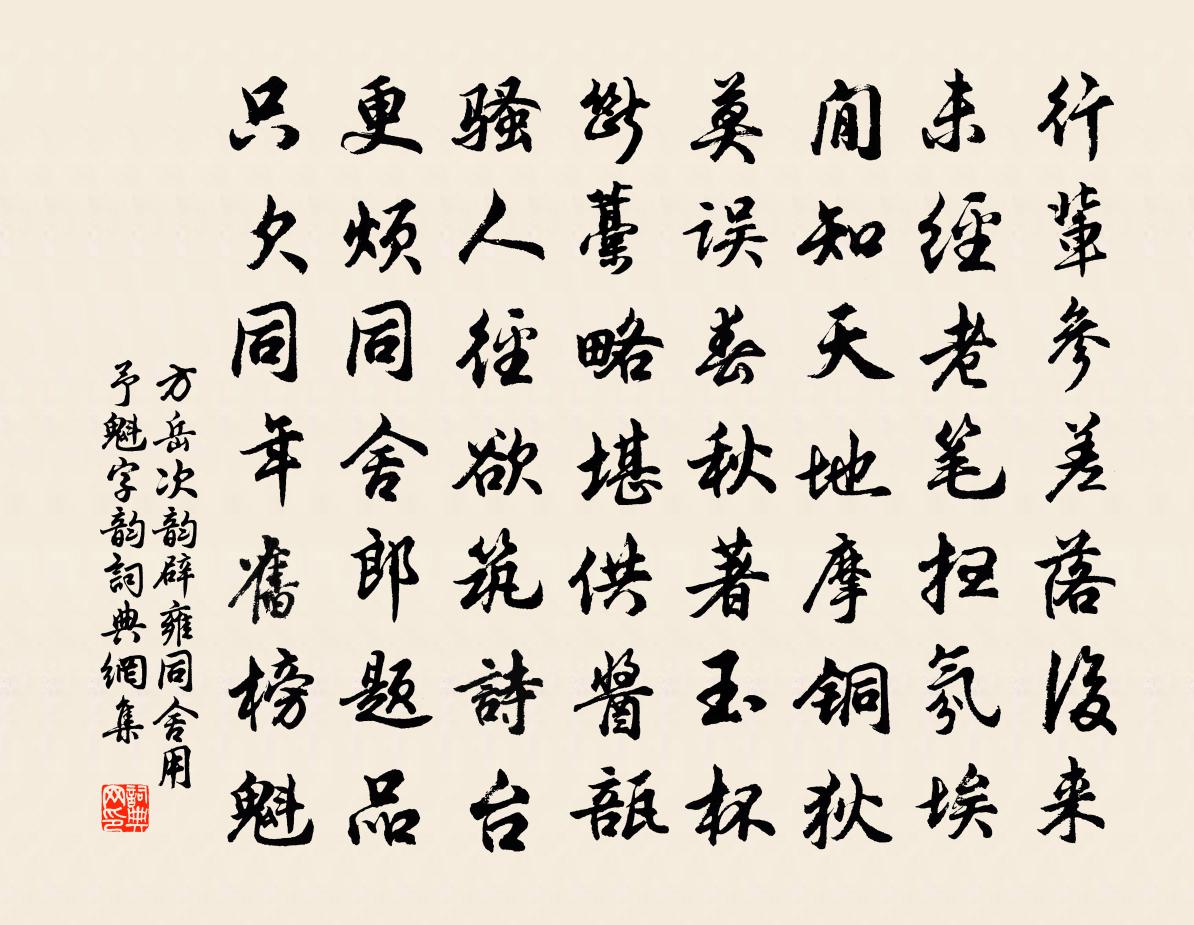 行輩參差落後来
未經老笔扫氛埃
閒知天地摩铜狄
莫误春秋著玉杯
斷藳略堪供醬瓿
骚人径欲筑詩台
更烦同舍郎题品
只欠同年舊榜魁
方岳次韵辟雍同舍用
予魁字韵詞典網集
詞典网印